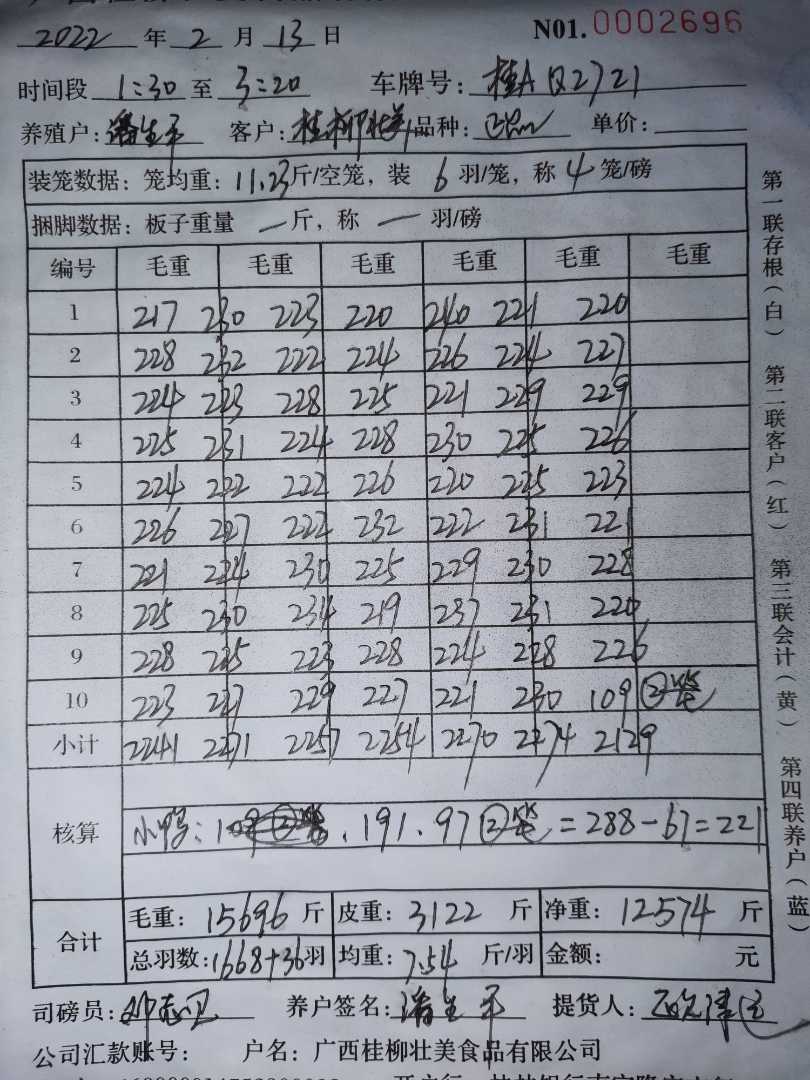 2022 年 2 月 13 日 N01.0002696
时间段 1:30 至 3:20 车牌号: 桂A Q2721
养殖户: 潘生平 客户: 桂柳壮美 品种: 单价:
装笼数据: 笼均重: 11.23 斤/空笼, 装 6 羽/笼, 称 4 笼/磅
捆脚数据: 板子重量 — 斤, 称 — 羽/磅
编号 毛重 毛重 毛重 毛重 毛重 毛重
1 217 230 223 220 240 221 220
2 228 232 222 224 226 224 227
3 224 223 228 225 221 229 229
4 225 231 224 228 230 225 226
5 224 222 222 226 220 225 223
6 226 227 222 232 222 231 221
7 221 224 230 225 229 230 228
8 225 230 234 219 237 231 220
9 228 225 223 228 224 228 226
10 223 227 229 227 221 230 109 ②笼
小计 2241 2271 2257 2254 2270 2274 2129
核算 小鸭: 191.97②笼=288-67=221
合计 毛重: 15696 斤 皮重: 3122 斤 净重: 12574 斤
总羽数: 1668+36 羽 均重: 7.54 斤/羽 金额: 元
司磅员: 养户签名: 潘生平 提货人:
公司汇款账号: 户名: 广西桂柳壮美食品有限公司
第一联存根(白) 第二联客户(红) 第三联会计(黄) 第四联养户(蓝)